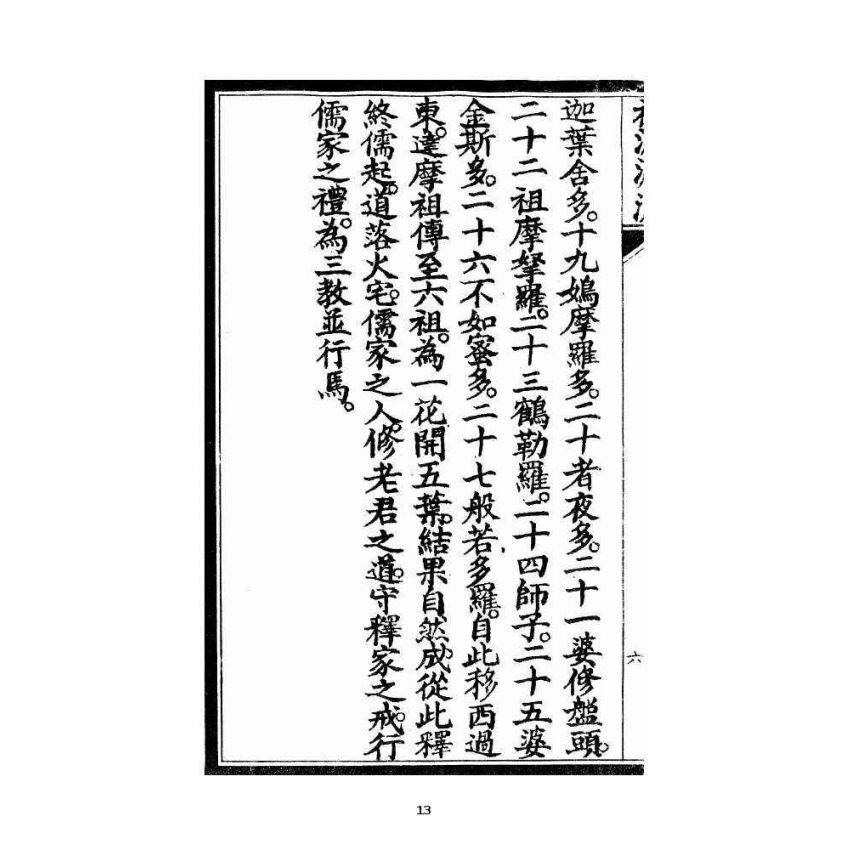 迦葉舍多。十九鳩摩羅多。二十者夜多。二十一婆修盤頭。
二十二祖摩拏羅。二十三鶴勒羅。二十四師子。二十五婆
金斯多。二十六不如蜜多。二十七般若多羅。自此移西過
東。達摩祖傳至六祖。為一花開五葉。結果自然成。從此釋
終儒起。道落火宅。儒家之人。修老君之道。守釋家之戒。行
儒家之禮。為三教並行焉。
六
13